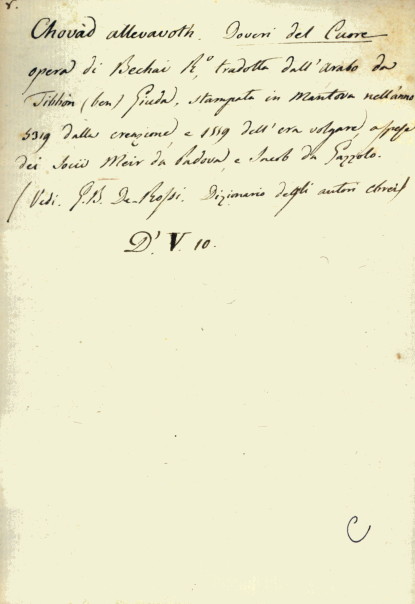 8.
Chovád allevavoth. Doveri del Cuore
opera di Bechai R.o, tradotta dall'Arabo da
Tibbòn (ben) Giuda, stampata in Mantova nell'anno
5319 dalla creazione, e 1559 dell'era volgare, a spese
dei Socii Meir da Padova, e Jacob da Gazzolo.
(Vedi. G.B. De-Rossi. Dizionario degli autori ebrei)
D'. V. 10.
C